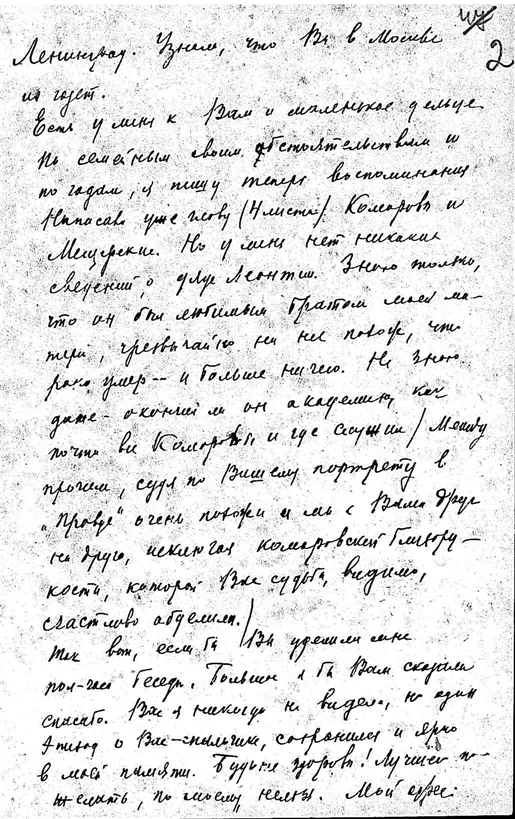 2
Ленинград. Узнала, что Вы в Москве
из газет.
Есть у меня к Вам и маленькое дельце
По семейным своим обстоятельствам и
по годам, я пишу теперь воспоминания
Написала уже главу (4 листа) Комаровы и
Мещерские. Но у меня нет никаких
сведений о дяде Леонтии. Знаю только,
что он был любимым братом моей ма-
тери, чрезвычайно на нее похож, что
рано умер -- и больше ничего. Не знаю
даже - окончил ли он академию, как
почти все Комаровы и где служил / Между
прочим, судя по Вашему портрету в
"Правде" очень похожи и мы с Вами друг
на друга, исключая комаровской близору-
кости, которой Вас судьба, видимо,
счастливо обделила. /
Так вот, если бы Вы уделили мне
пол-часа беседы, большое я бы Вам сказала
спасибо. Вас я никогда не видела, но один
эпизод о Вас - сохранился и ярко
в моей памяти. Будьте здоровы! Лучшего по-
желать, по моему, нельзя. Мой адрес: